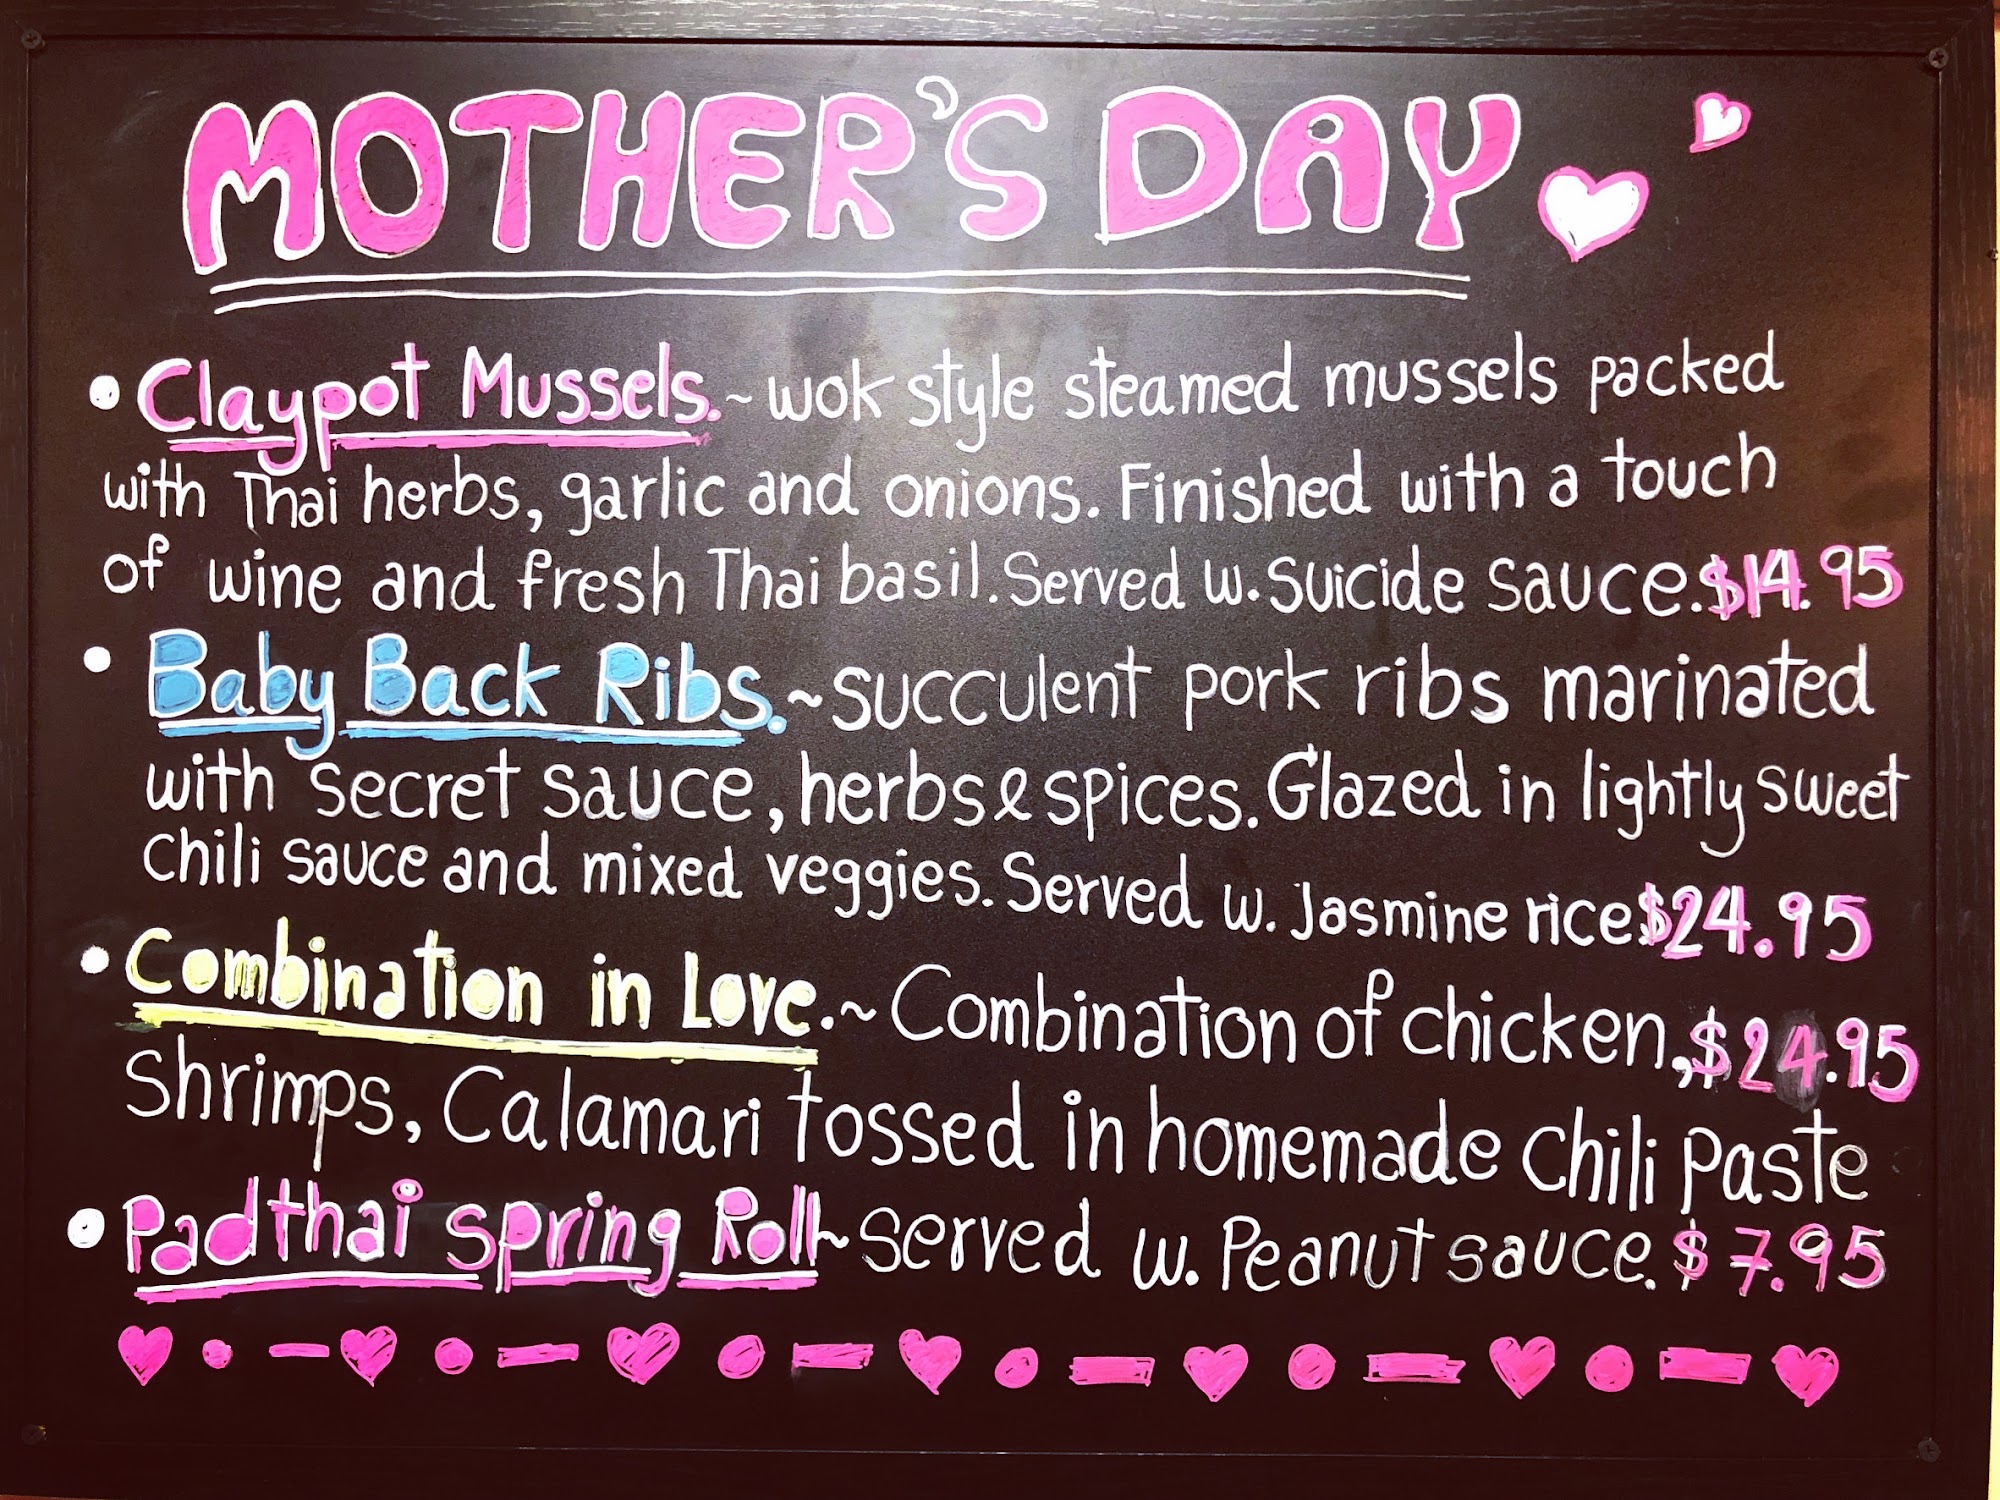 MOTHER'S DAY
• Claypot Mussels.~wok style steamed mussels packed
with Thai herbs, garlic and onions. Finished with a touch
of wine and fresh Thai basil. Served w. suicide sauce. $14.95
• Baby Back Ribs.~succulent pork ribs marinated
with secret sauce, herbs & spices. Glazed in lightly sweet
chili sauce and mixed veggies. Served w. Jasmine rice $24.95
• Combination in Love.~Combination of chicken, $24.95
Shrimps, Calamari tossed in homemade chili paste
• Padthai spring Roll~served w. Peanut sauce. $7.95